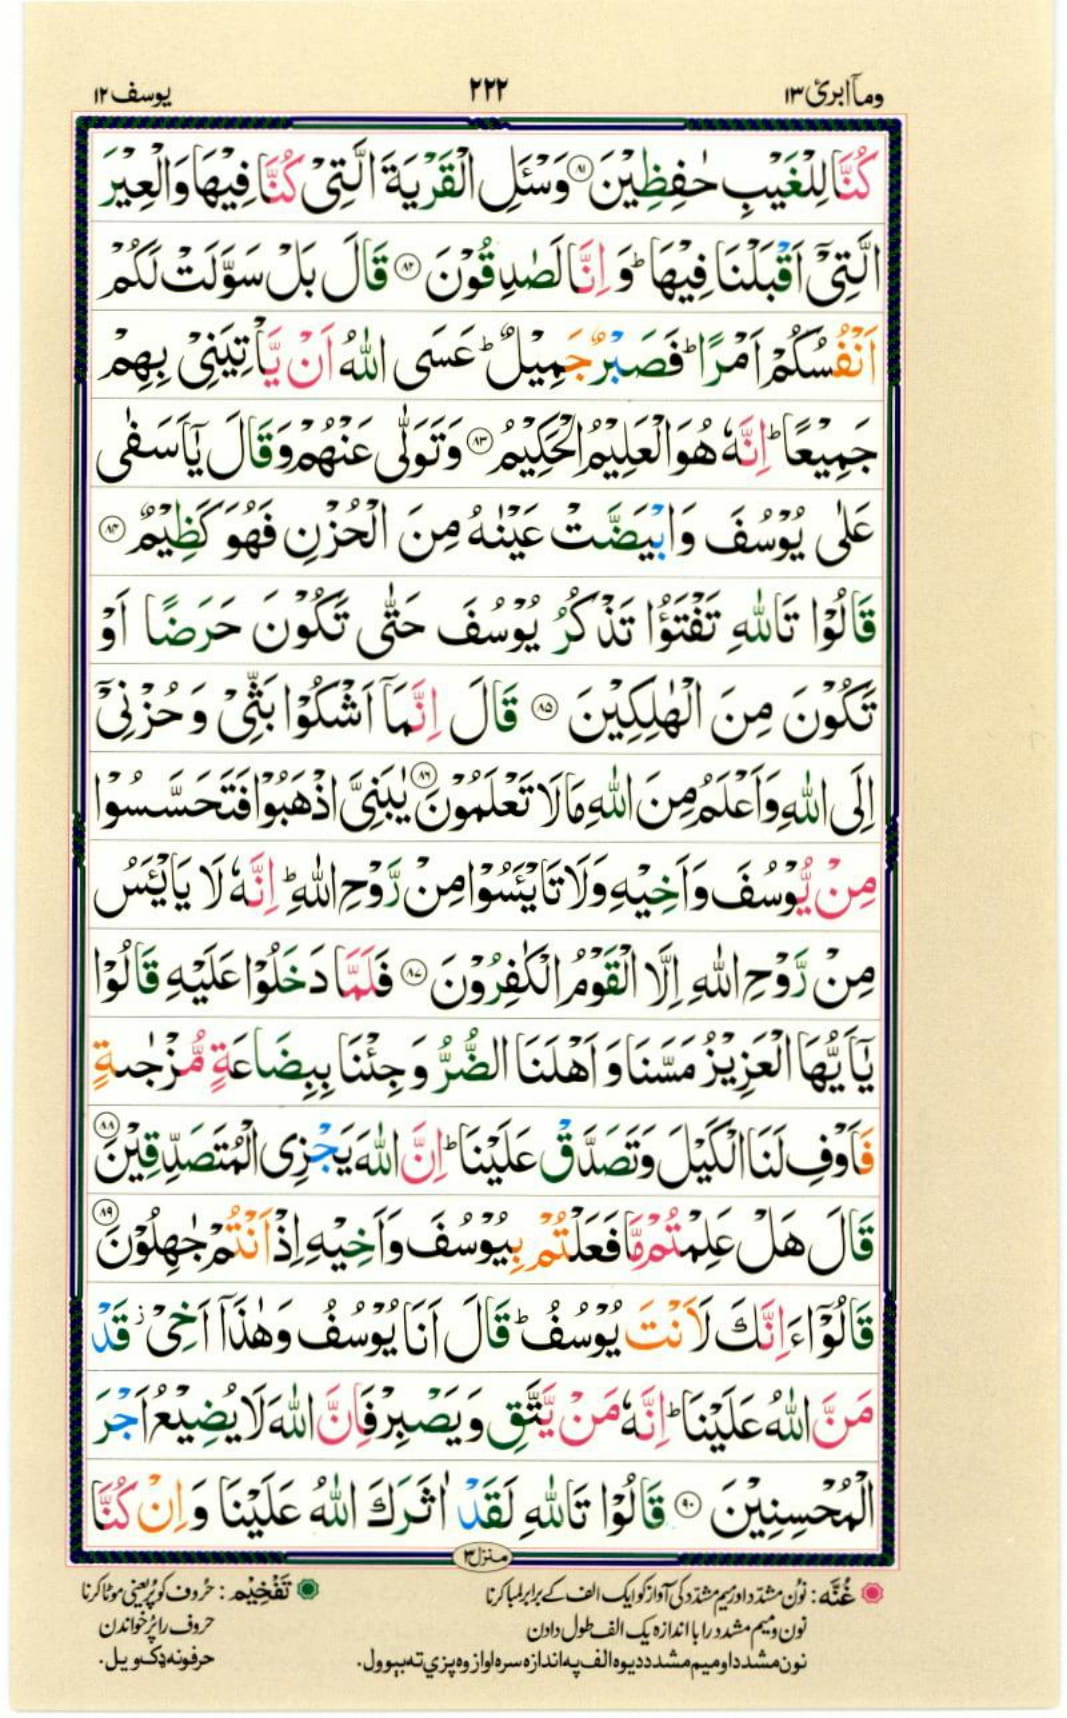 وماۤابرئ ١٣
٢٢٢
یوسف ١٢
كُنَّا لِلْغَیْبِ حٰفِظِیْنَ ﴿۸۱﴾ وَسْـَٔلِ الْقَرْیَةَ الَّتِیْ كُنَّا فِیْهَا وَالْعِیْرَ
الَّتِیْۤ اَقْبَلْنَا فِیْهَا ؕ وَ اِنَّا لَصٰدِقُوْنَ ﴿۸۲﴾ قَالَ بَلْ سَوَّلَتْ لَكُمْ
اَنْفُسُكُمْ اَمْرًا ؕ فَصَبْرٌ جَمِیْلٌ ؕ عَسَی اللّٰهُ اَنْ یَّاْتِیَنِیْ بِهِمْ
جَمِیْعًا ؕ اِنَّهٗ هُوَ الْعَلِیْمُ الْحَكِیْمُ ﴿۸۳﴾ وَ تَوَلّٰی عَنْهُمْ وَ قَالَ یٰۤاَسَفٰی
عَلٰی یُوْسُفَ وَ ابْیَضَّتْ عَیْنٰهُ مِنَ الْحُزْنِ فَهُوَ كَظِیْمٌ ﴿۸۴﴾
قَالُوْا تَاللّٰهِ تَفْتَؤُا تَذْكُرُ یُوْسُفَ حَتّٰی تَكُوْنَ حَرَضًا اَوْ
تَكُوْنَ مِنَ الْهٰلِكِیْنَ ﴿۸۵﴾ قَالَ اِنَّمَاۤ اَشْكُوْا بَثِّیْ وَ حُزْنِیْۤ
اِلَی اللّٰهِ وَ اَعْلَمُ مِنَ اللّٰهِ مَا لَا تَعْلَمُوْنَ ﴿۸۶﴾ یٰبَنِیَّ اذْهَبُوْا فَتَحَسَّسُوْا
مِنْ یُّوْسُفَ وَ اَخِیْهِ وَ لَا تَایْـَٔسُوْا مِنْ رَّوْحِ اللّٰهِ ؕ اِنَّهٗ لَا یَایْـَٔسُ
مِنْ رَّوْحِ اللّٰهِ اِلَّا الْقَوْمُ الْكٰفِرُوْنَ ﴿۸۷﴾ فَلَمَّا دَخَلُوْا عَلَیْهِ قَالُوْا
یٰۤاَیُّهَا الْعَزِیْزُ مَسَّنَا وَ اَهْلَنَا الضُّرُّ وَ جِئْنَا بِبِضَاعَةٍ مُّزْجٰىةٍ
فَاَوْفِ لَنَا الْكَیْلَ وَ تَصَدَّقْ عَلَیْنَا ؕ اِنَّ اللّٰهَ یَجْزِی الْمُتَصَدِّقِیْنَ ﴿۸۸﴾
قَالَ هَلْ عَلِمْتُمْ مَّا فَعَلْتُمْ بِیُوْسُفَ وَ اَخِیْهِ اِذْ اَنْتُمْ جٰهِلُوْنَ ﴿۸۹﴾
قَالُوْۤا ءَاِنَّكَ لَاَنْتَ یُوْسُفُ ؕ قَالَ اَنَا یُوْسُفُ وَ هٰذَاۤ اَخِیْ ؗ قَدْ
مَنَّ اللّٰهُ عَلَیْنَا ؕ اِنَّهٗ مَنْ یَّتَّقِ وَ یَصْبِرْ فَاِنَّ اللّٰهَ لَا یُضِیْعُ اَجْرَ
الْمُحْسِنِیْنَ ﴿۹۰﴾ قَالُوْا تَاللّٰهِ لَقَدْ اٰثَرَكَ اللّٰهُ عَلَیْنَا وَ اِنْ كُنَّا
منزل ٣
غُنَّه: نون مشدّد اور میم مشدّد کی آواز کو ایک الف کے برابر لمبا کرنا
نون و میم مشدد را با اندازه یک الف طول دادن
نون مشدد او میم مشدد دیوه الف په اندازه سره اواز وه پزې ته بېوول.
تَفْخِیْم: حُروف کو پُر یعنی موٹا کرنا
حروف را پُر خواندن
حرفونه ډک ویل.